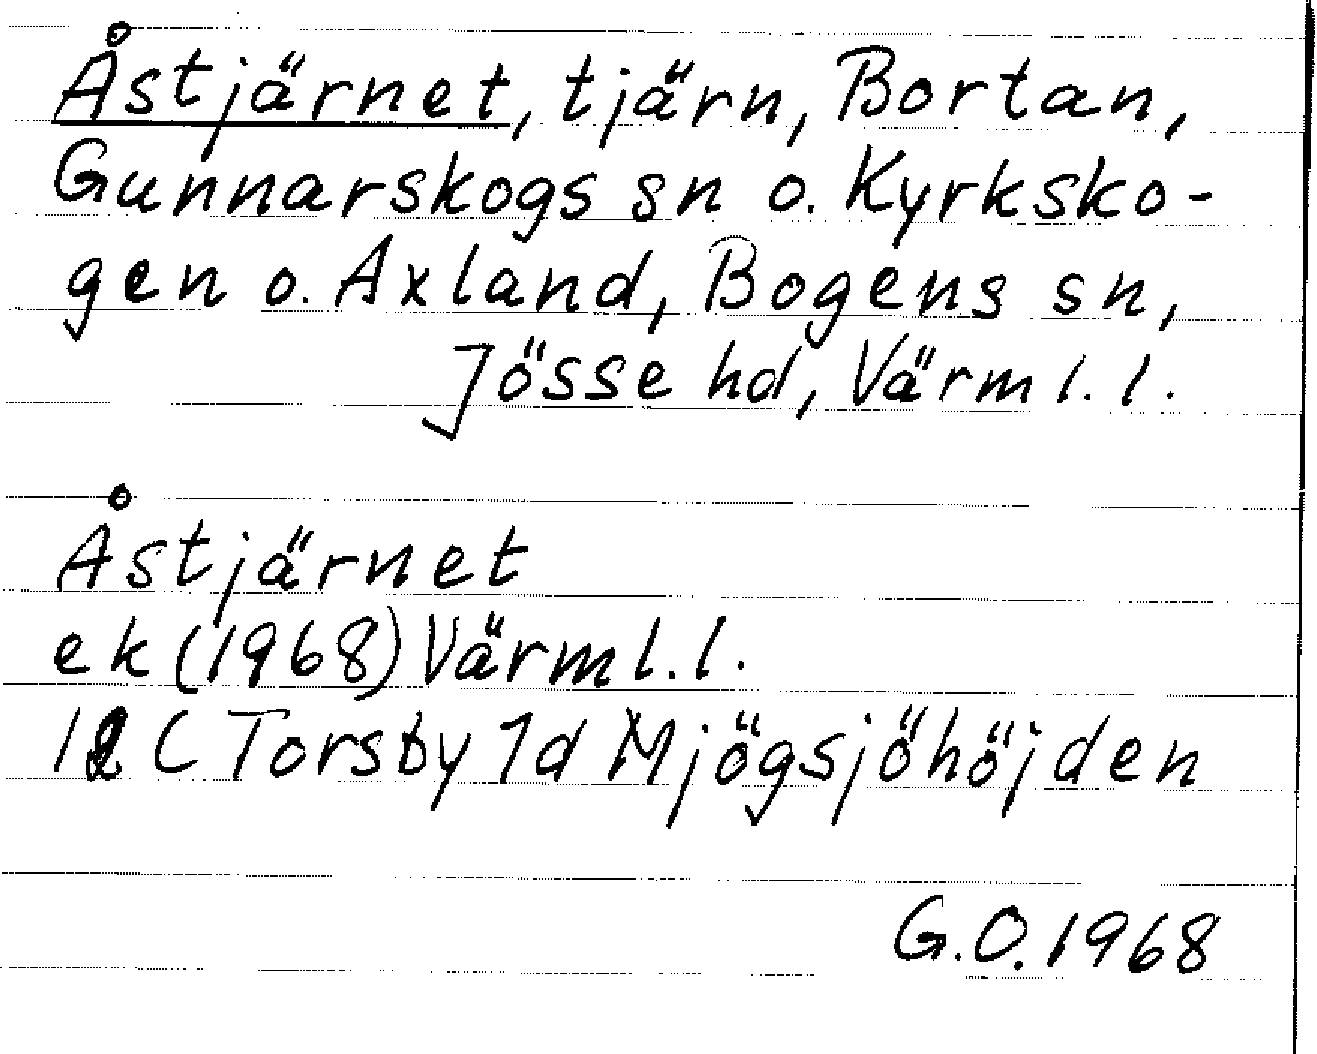 Åstjärnet, tjärn, Bortan,
Gunnarskogs sn o. Kyrksko-
gen o. Axland, Bogens sn,
Jösse hd, Värml. l.
Åstjärnet
ek (1968) Värml. l.
12 C Torsby 1d Mjögsjöhöjden
G.O. 1968